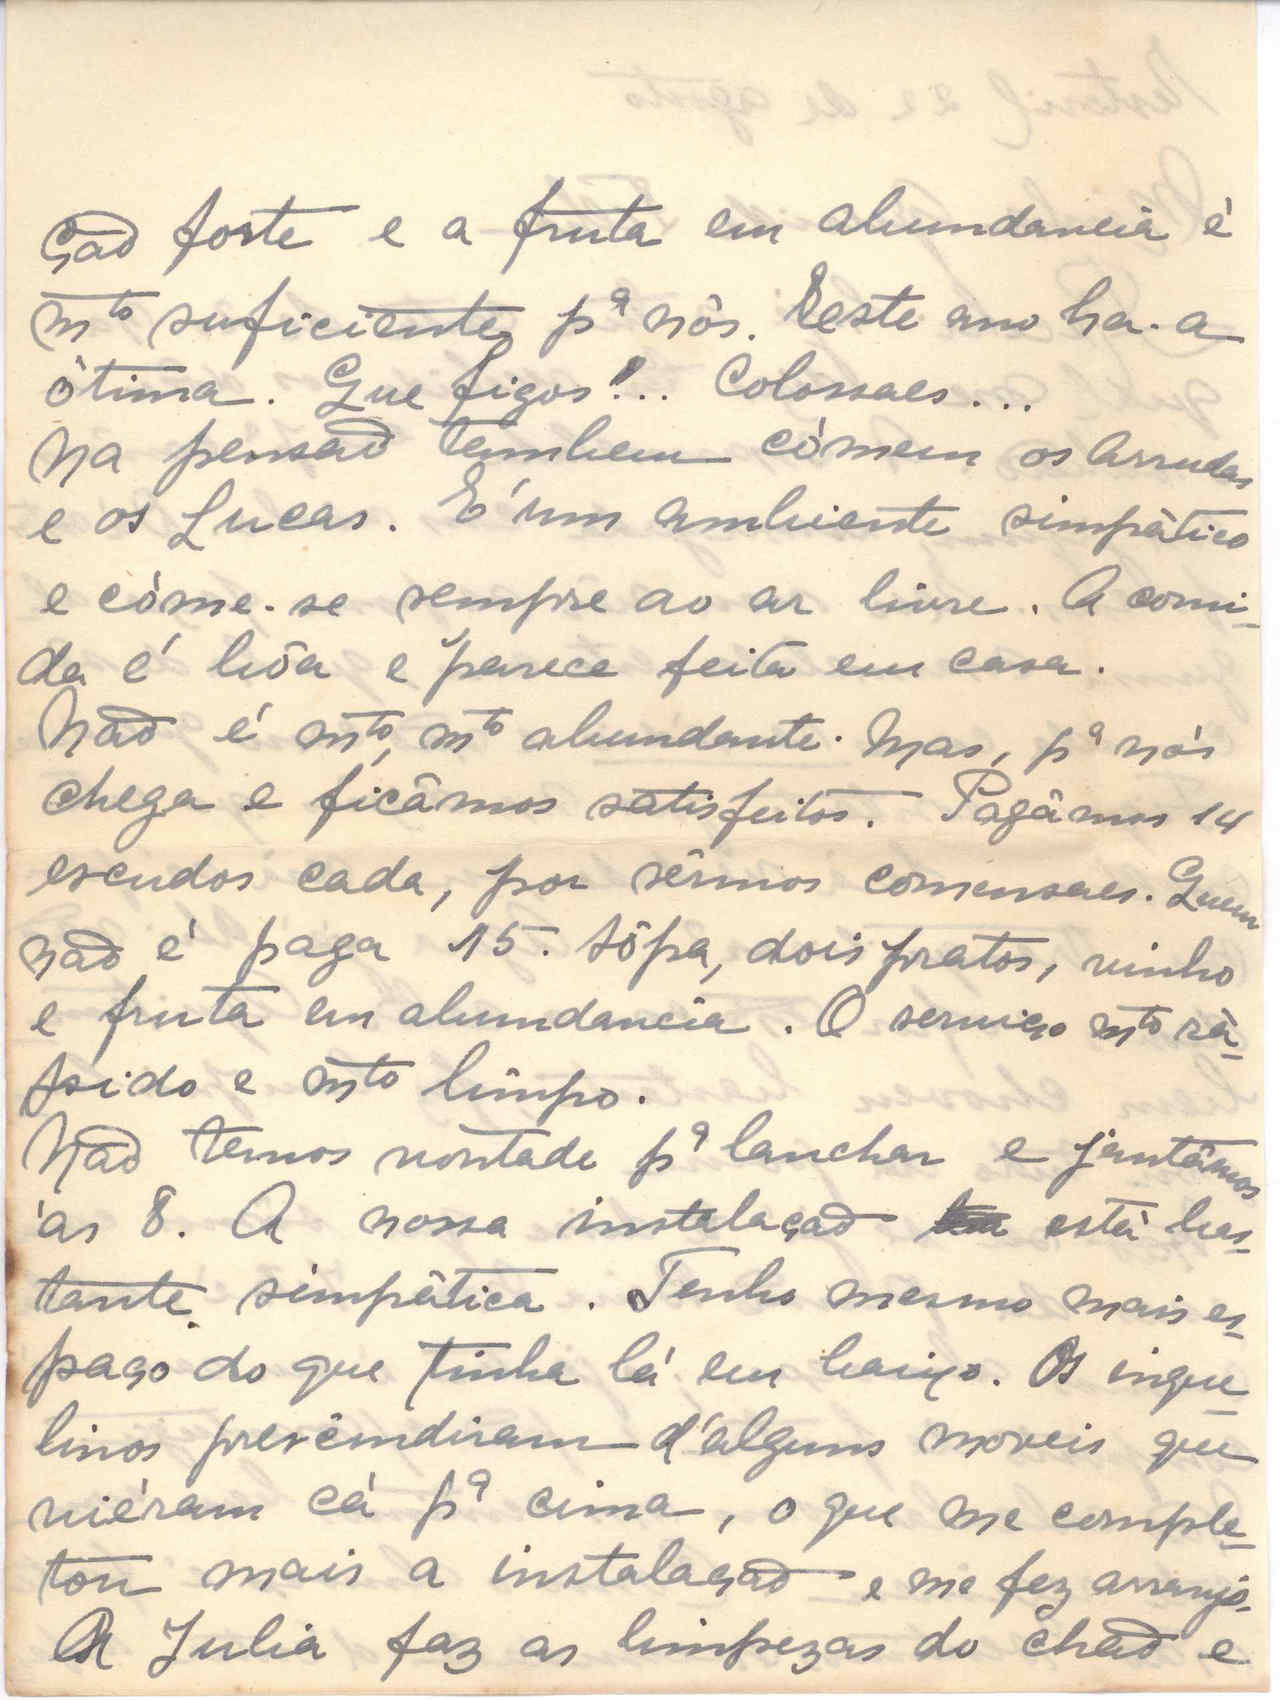 ção forte e a fruta em abundancia é
mto suficiente, pª nós. Este ano ha-a
ótima. Que figos!... Colossaes...
Na pensão tambem cómem os Arrudas
e os Lucas. É um ambiente simpático
e cóme-se sempre ao ar livre. A comi-
da é bôa e parece feita em casa.
Não é mto, mto abundante. Mas, pª nós
chega e ficâmos satisfeitos. Pagâmos 14
escudos cada, por sêrmos comensaes. Quem
não é paga 15. Sôpa, dois pratos, vinho
e fruta em abundancia. O serviço mto rá-
pido e mto limpo.
Não temos vontade pª lanchar e jantâmos
ás 8. A nossa instalação está bas-
tante simpática. Tenho mesmo mais es-
paço do que tinha lá em baixo. Os inque-
linos prescindiram d'alguns moveis que
viéram cá pª cima, o que me comple-
tou mais a instalação e me fez arranjo.
A Julia faz as limpezas do chão e